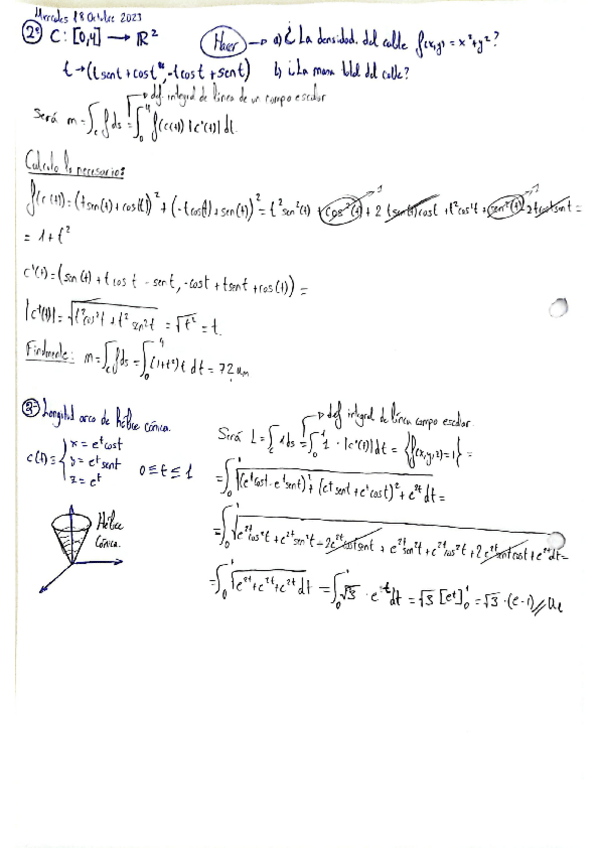 Miercoles 18 Octubre 2023
2º C: [0,4] → R² Hacer → a) ¿La densidad del cable f(x,y) = x²+y²?
t → (t sent + cost, -t cost + sent) b) ¿La masa total del cable?
→ def integral de línea de un campo escalar
Será m = ∫_c f ds = ∫_0^4 f(c(t)) |c'(t)| dt.
Calculo lo necesario:
f(c(t)) = (t sen(t) + cos(t))² + (-t cos(t) + sen(t))² = t² sen²(t) + cos²(t) + 2 t sen(t) cost + t² cos²t + sen²(t) - 2t cost sent =
= 1 + t²
c'(t) = (sen(t) + t cos t - sen t, -cost + t sent + cos(t)) =
|c'(t)| = √(t² cos²t + t² sen²t) = √t² = t.
Finalmente: m = ∫_c f ds = ∫_0^4 (1+t²) t dt = 72 um
3º Longitud arco de hélice cónica.
c(t) ≡ { x = e^t cost
y = e^t sent
z = e^t
0 ≤ t ≤ 1
Hélice
Cónica.
→ def integral de línea campo escalar
Será L = ∫_c 1 ds = ∫_0^1 1 · |c'(t)| dt = {f(x,y,z) = 1} =
= ∫_0^1 √((e^t cost - e^t sent)² + (e^t sent + e^t cost)² + e^2t) dt =
= ∫_0^1 √(e^2t cos²t + e^2t sen²t - 2e^2t cost sent + e^2t sen²t + e^2t cos²t + 2e^2t sent cost + e^2t) dt =
= ∫_0^1 √(e^2t + e^2t + e^2t) dt = ∫_0^1 √3 · e^t dt = √3 [e^t]_0^1 = √3 · (e-1) // uL